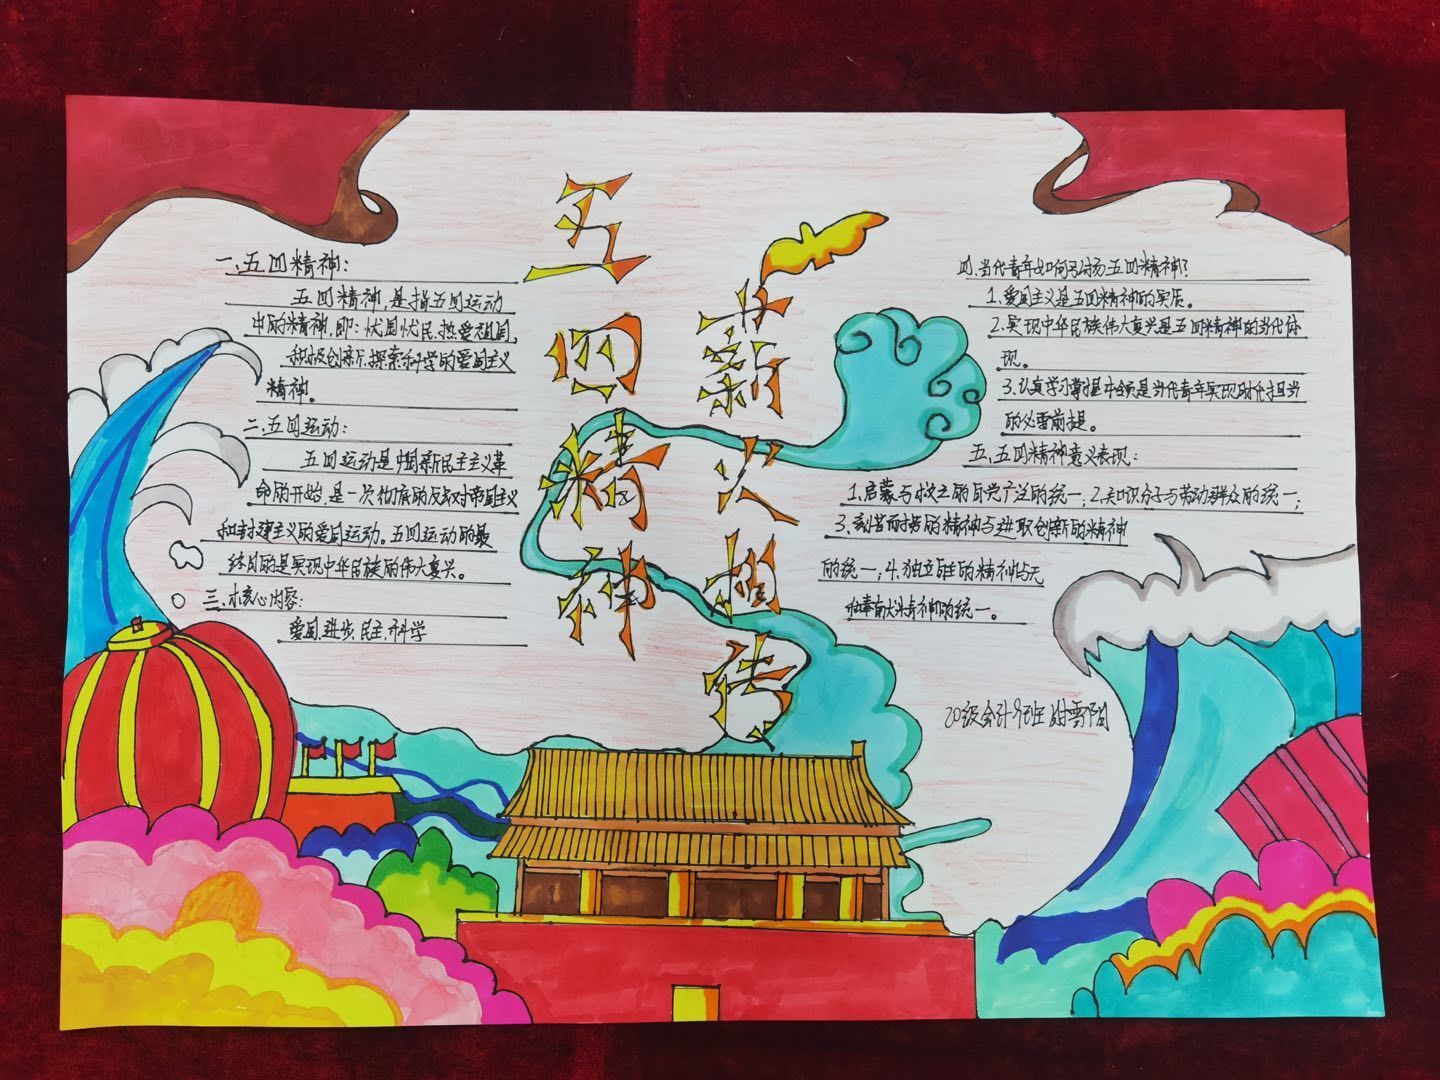 五四精神
薪火相传
一.五四精神:
五四精神,是指五四运动
中的精神,即:忧国忧民、热爱祖国,
积极创新、探索科学的爱国主义
精神。
二.五四运动:
五四运动是中国新民主主义革
命的开始,是一次彻底的反对帝国主义
和封建主义的爱国运动。五四运动的最
终目的是实现中华民族的伟大复兴。
三.核心内容:
爱国.进步.民主.科学
四.当代青年如何弘扬五四精神?
1.爱国主义是五四精神的实质。
2.实现中华民族伟大复兴是五四精神的当代体
现。
3.认真学习掌握本领是当代青年实现时代担当
的必需前提。
五、五四精神意义表现:
1.启蒙与救亡的自觉广泛的统一;2.知识分子与劳动群众的统一;
3、刻苦耐劳的精神与进取创新的精神
的统一;4.独立自主的精神与无
私奉献精神的统一。
20级会计9班 雪阳